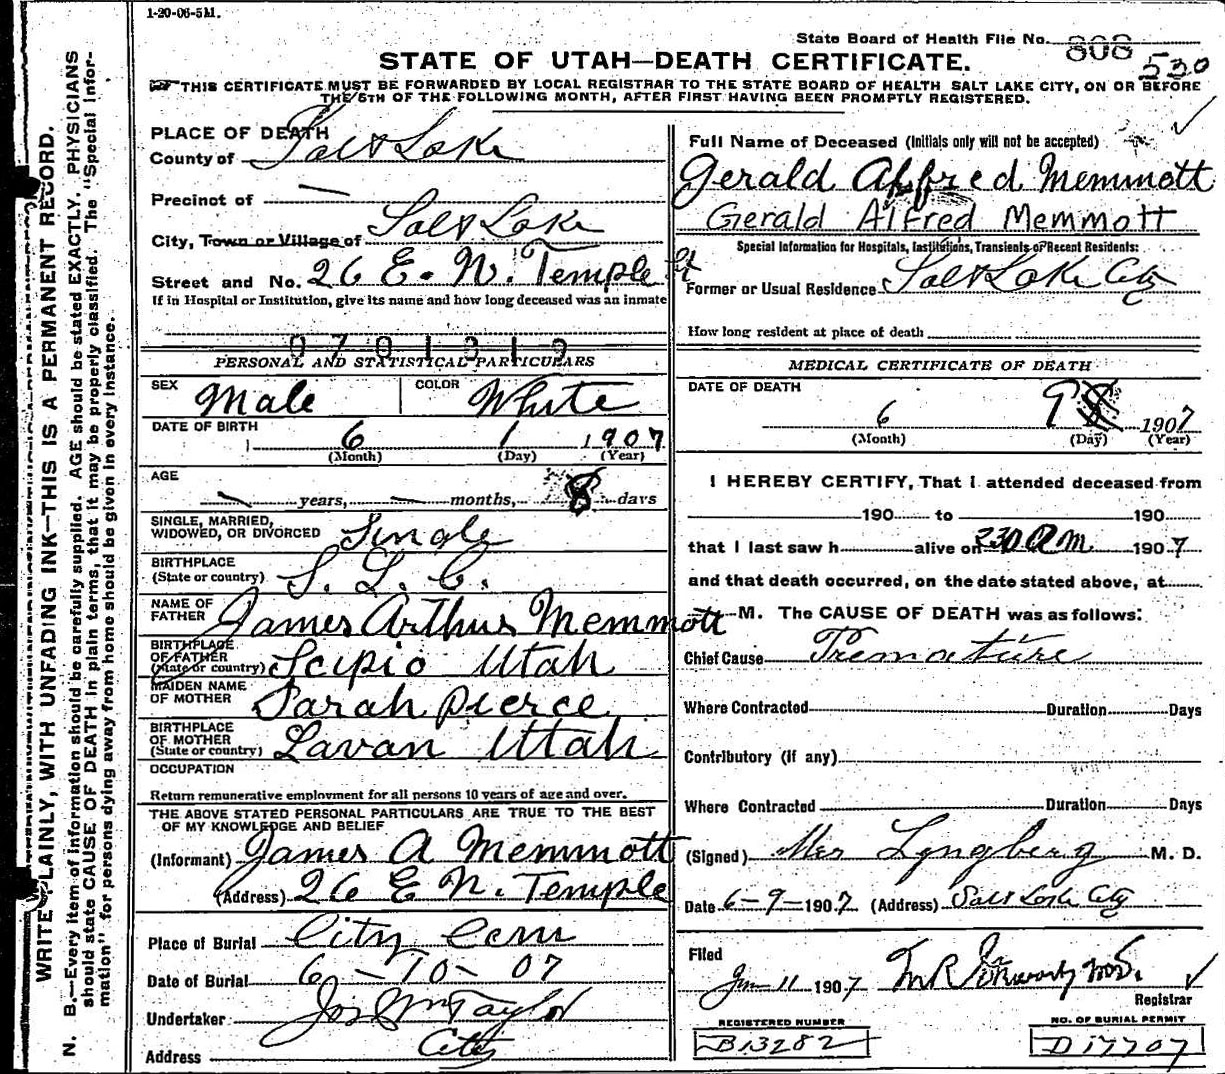 1-20-06-5M.
State Board of Health File No. 808
530
STATE OF UTAH—DEATH CERTIFICATE.
THIS CERTIFICATE MUST BE FORWARDED BY LOCAL REGISTRAR TO THE STATE BOARD OF HEALTH SALT LAKE CITY, ON OR BEFORE
THE 5TH OF THE FOLLOWING MONTH, AFTER FIRST HAVING BEEN PROMPTLY REGISTERED.
WRITE PLAINLY, WITH UNFADING INK—THIS IS A PERMANENT RECORD.
N. B.—Every item of information should be carefully supplied. AGE should be stated EXACTLY. PHYSICIANS
should state CAUSE OF DEATH in plain terms, that it may be properly classified. The "Special Infor-
mation" for persons dying away from home should be given in every instance.
PLACE OF DEATH
County of Salt Lake
Precinct of —
City, Town or Village of Salt Lake
Street and No. 26 E. N. Temple St
If in Hospital or Institution, give its name and how long deceased was an inmate
0701319
PERSONAL AND STATISTICAL PARTICULARS
SEX Male COLOR White
DATE OF BIRTH 6 1 1907
(Month) (Day) (Year)
AGE — years, — months, 8 days
SINGLE, MARRIED,
WIDOWED, OR DIVORCED Single
BIRTHPLACE
(State or country) S. L. C.
NAME OF
FATHER James Arthur Memmott
BIRTHPLACE
OF FATHER
(State or country) Scipio Utah
MAIDEN NAME
OF MOTHER Sarah Pierce
BIRTHPLACE
OF MOTHER
(State or country) Lavan Utah
OCCUPATION
Return remunerative employment for all persons 10 years of age and over.
THE ABOVE STATED PERSONAL PARTICULARS ARE TRUE TO THE BEST
OF MY KNOWLEDGE AND BELIEF
(Informant) James A Memmott
(Address) 26 E N. Temple
Place of Burial City Cem
Date of Burial 6-10-07
Undertaker Jos Wm Taylor
Address City
Full Name of Deceased (Initials only will not be accepted)
Gerald Alfred Memmott
Gerald Alfred Memmott
Special Information for Hospitals, Institutions, Transients or Recent Residents:
Former or Usual Residence Salt Lake City
How long resident at place of death
MEDICAL CERTIFICATE OF DEATH
DATE OF DEATH
6 9 1907
(Month) (Day) (Year)
I HEREBY CERTIFY, That I attended deceased from
190 to 190
that I last saw h alive on 230 AM 1907
and that death occurred, on the date stated above, at
M. The CAUSE OF DEATH was as follows:
Chief Cause Premature
Where Contracted Duration Days
Contributory (if any)
Where Contracted Duration Days
(Signed) Mrs Lyngberg M. D.
Date 6-9-1907 (Address) Salt Lake City
Filed
Jun 11 1907 M.D.
Registrar
REGISTERED NUMBER
B13282
NO. OF BURIAL PERMIT
D17707